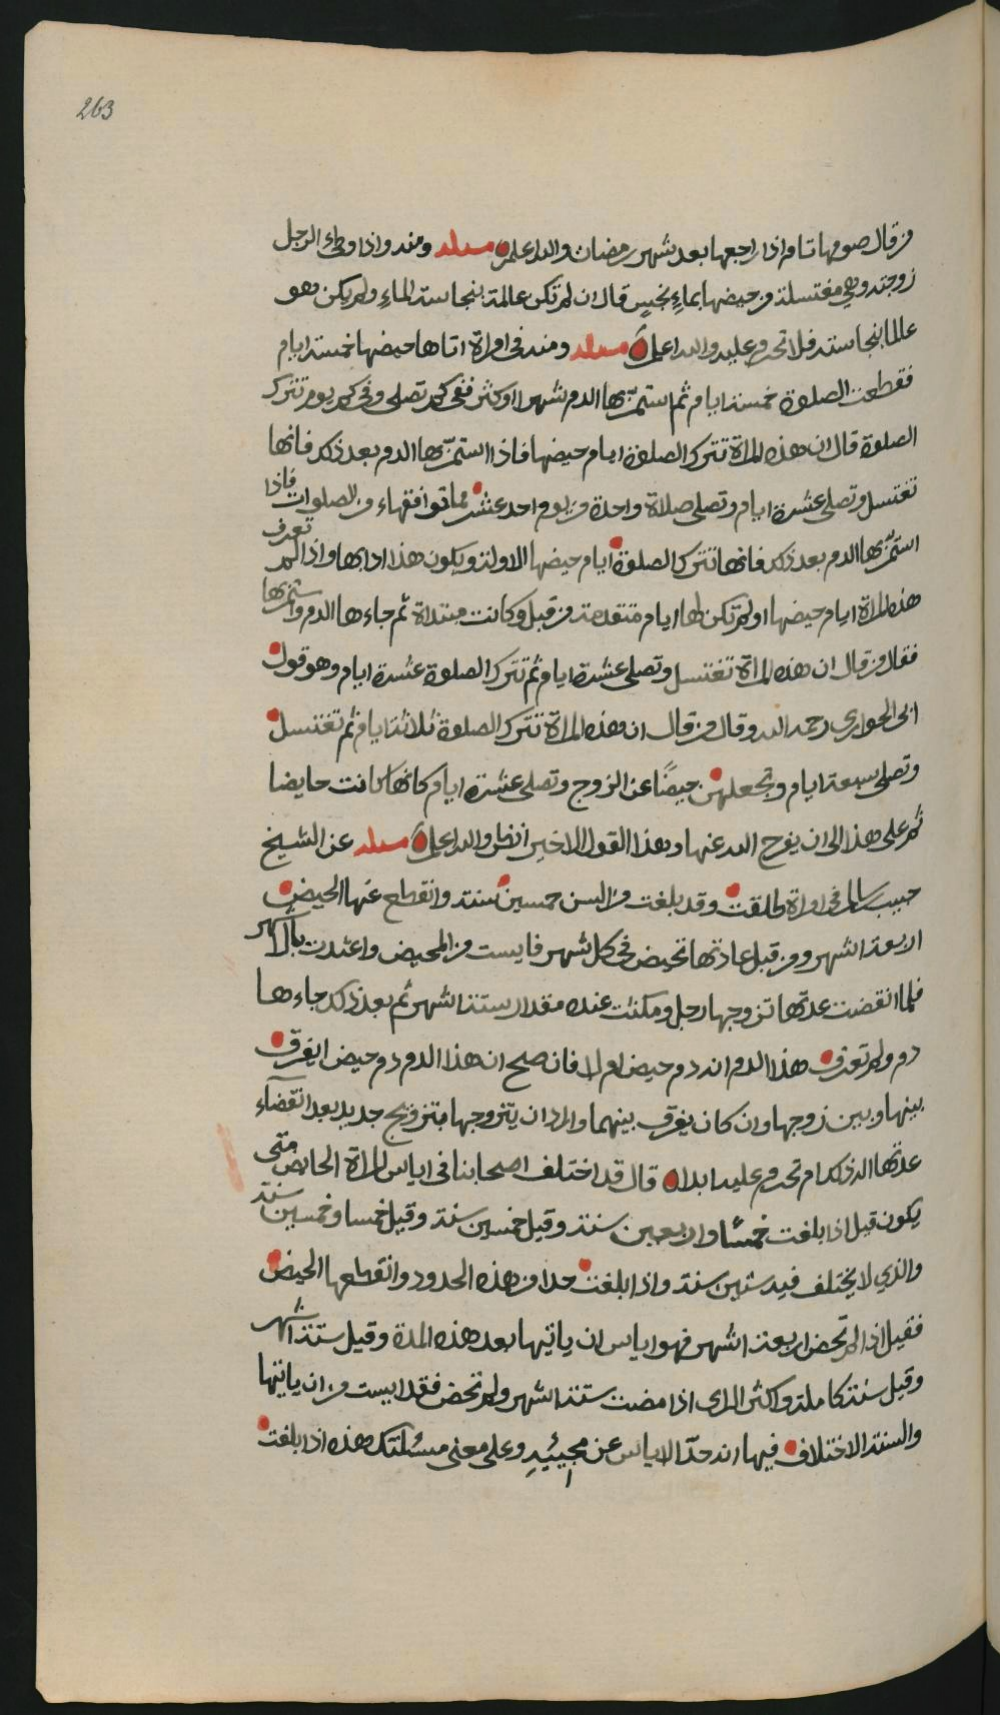 263
من قال صومها تام اذا راجعها بعد شهر رمضان والله اعلم مسئلة ومنه واذا وطء الرجل
زوجته وهي مغتسلة من حيضها بماءٍ نجسٍ قال ان لم تكن عالمة بنجاسة الماءِ ولم يكن هو
عالما بنجاسته فلا تحرم عليه والله اعلم مسئلة ومنه في امراة اتاها حيضها خمسة ايام
فقطعت الصلوة خمسة ايام ثم استمرّ بها الدم شهرا او كثر ففي كم تصلي وفي كم يوم تترك
الصلوة قال ان هذه المراة تترك الصلوة ايام حيضها فاذا استمرّ بها الدم بعد ذلك فانها
تغتسل وتصلي عشرة ايام وتصلي صلاة واحدة من يوم احد عشر مما توافقهاء من الصلوات فاذا
استمرّ بها الدم بعد ذلك فانها تترك الصلوة ايام حيضها الاولة ويكون هذا دابها واذا لم تعرف
هذه المراة ايام حيضها او لم تكن لها ايام متقدمة من قبل وكانت مبتداة ثم جاءها الدم واستمر بها
فقال من قال ان هذه المراة تغتسل وتصلي عشرة ايام ثم تترك الصلوة عشرة ايام وهو قول
ابي الحواري رحمه الله وقال من قال ان هذه المراة تترك الصلوة ثلاثة ايام ثم تغتسل
وتصلي سبعة ايام وتجعلهن حيضًا عن الزوج وتصلي عشرة ايام كانها كانت حايضا
ثم على هذا الى ان يفرج الله عنها وهذا القول الاخير انظر والله اعلم مسئلة عن الشيخ
حبيب سالم في امراة طلقت وقد بلغت من السن خمسين سنة وانقطع عنها الحيض
اربعة اشهر ومن قبل عادتها تحيض في كل شهر فايست من المحيض واعتدت بالاشهر
فلما انقضت عدتها تزوجها رجل ومكثت عنده مقدار ستة اشهر ثم بعد ذلك جاءها
دم ولم تعرف هذا الدم انه دم حيض ام لا فان صح ان هذا الدم دم حيض ايفرق
بينها وبين زوجها وان كان يفرق بينهما واراد ان يتزوجها بتزويج جديد بعد انقضاء
عدتها اله ذلك ام تحرم عليه ابدا قال قد اختلف اصحابنا في اياس المراة الحائض متى
يكون قيل اذا بلغت خمسًا واربعين سنة وقيل خمسين سنة وقيل خمسا وخمسين سنة
والذي لا يختلف فيه ستين سنة واذا بلغت حدا من هذه الحدود وانقطعها الحيض
فقيل اذا لم تحض اربعة اشهر فهو اياس ان ياتيها بعد هذه المدة وقيل ستة اشهر
وقيل سنة كاملة واكثر الراي اذا مضت ستة اشهر ولم تحض فقد ايست من ان ياتيها
والسنة الاختلاف فيها انه حدّ الاياس عن مجيئهِ وعلى معنى مسئلتك هذه اذا بلغت